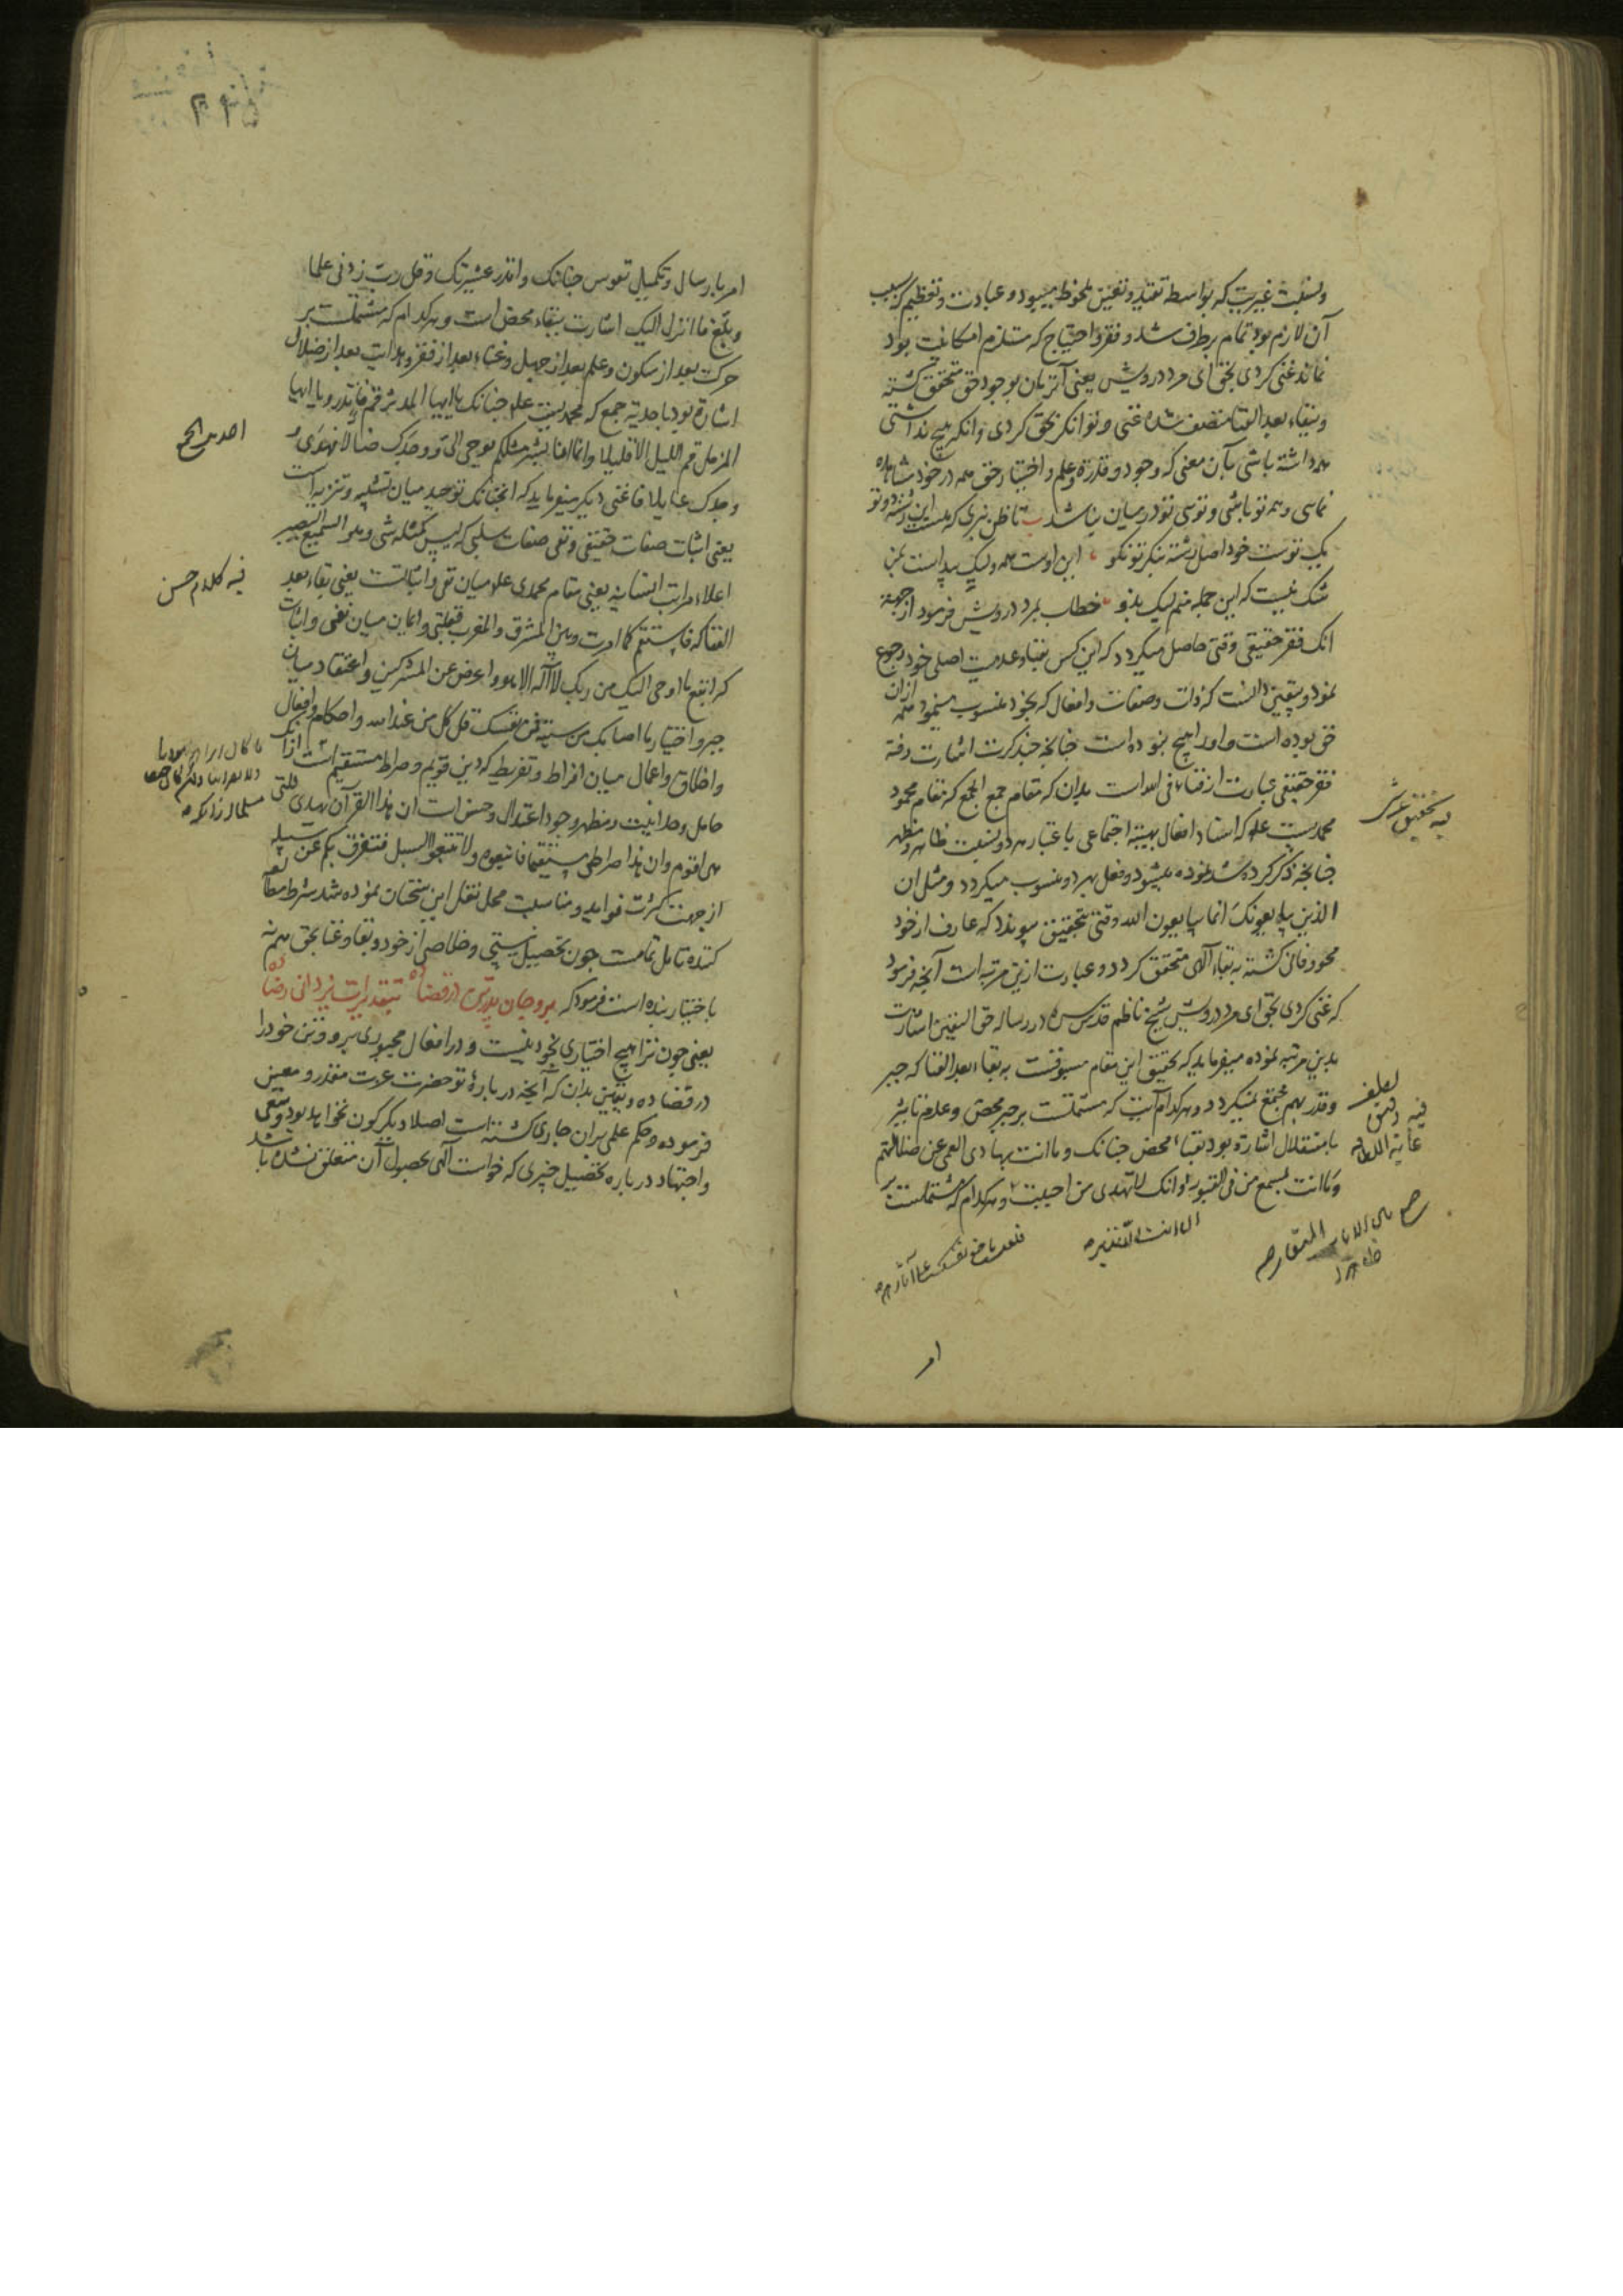 ونسبت غیریت که بواسطه تقید و تعین ملحوظ میبود و عبادت و تعظیم که سبب
آن لازم بود تمام برطرف شد و فقر و احتیاج که مستلزم امکانیت بود
نماند غنی کردی بحق ای مرد درویش یعنی آنزمان بوجود حق متحقق کشته
و ببقاء بعد الفنا متصف شده غنی و توانکر بحق کردی و انکر هیچ نداشتی
همه داشته باشی بآن معنی که وجود و قدرة و علم و اختیار حق همه در خود مشاهده
نمایی و همه تو باشی و تویی تو در میان نباشد تا ظن نبری که هست این رشته دو تو
یک توست خود اصل رشته بنکر تو نکو این اوست همه ولیک پیداست بمن
شک نیست که این جمله منم لیک بدو خطاب بمرد درویش فرمود از جهة
انک فقر حقیقی وقتی حاصل میکردد که این کس بفنا و عدمیت اصلی خود رجوع
نمود و بیقین دانست که ذات و صفات و افعال که بخود منسوب مینمود همه ازان
حق بوده است و اورا هیچ نبوده است چنانچه چند کرت اشارت رفته
فقر حقیقی عبارت از فناء فی الله است بدان که مقام جمع الجمع که مقام محمود
محمدیست علم که اسناد افعال بهیئة اجتماعی باعتبار هر دو نسبت ظاهر و مظهر
چنانچه ذکر کرده شد نموده میشود و فعل بهر دو منسوب میکردد و مثل ان
الذین یبایعونک انما یبایعون الله وقتی بتحقیق پیوندد که عارف از خود
محو و فانی کشته به بقاء الهی متحقق کردد و عبارت ازین مرتبه است آنچه فرمود
که غنی کردی بحق ای مرد درویش شیخ ناظم قدس سره در رساله حق الیقین اشارت
بدین مرتبه نموده میفرماید که تحقیق این مقام مسبوقست به بقاء بعد الفنا که جبر
وقدر بهم مجتمع نمیکردد و هر کدام آیت که مشتملست بر جبر محض و عدم تاثیر
باستقلال اشارة بود بفناء محض چنانک و ما انت بهادی العمی عن ضلالتهم
و ما انت بمسمع من فی القبور و انک لا تهدی من احببت و هر کدام که مشتملست بر
فیه تحقیق عرشی
فلعلک باخع نفسک علی آثارهم
ان انت الا نذیر
امر
امر بارسال و تکمیل نفوس چنانک و انذر عشیرتک و قل رب زدنی علما
و بلغ ما انزل الیک اشارت ببقاء محض است و هر کدام که مشتملست بر
حرکت بعد از سکون و علم بعد از جهل و غناء بعد از فقر و هدایت بعد از ضلال
اشارة بود باحدیة جمع که محمدیست علم چنانک یا ایها المدثر قم فانذر و یا ایها
المزمل قم اللیل الا قلیلا و انما انا بشر مثلکم یوحی الی و وجدک ضالا فهدی و
وجدک عائلا فاغنی دیکر میفرماید که انچنانک توحید میان تشبیه و تنزیه است
یعنی اثبات صفات حقیقی و نفی صفات سلبی که لیس کمثله شی و هو السمیع البصیر
اعلاء مراتب انسانیه یعنی مقام محمدی علم میان نفی و اثباتست یعنی بقاء بعد
الفنا که فاستقم کما امرت و بین المشرق و المغرب قبلتی و ایمان میان نفی و اثبات
که اتبع ما اوحی الیک من ربک لا اله الا هو و اعرض عن المشرکین و اعتقاد میان
جبر و اختیار ما اصابک من سیئة فمن نفسک قل کل من عند الله و احکام و افعال
و اخلاق و اعمال میان افراط و تفریط که دین قویم و صراط مستقیم است
حامل وحدانیت و مظهر وجود اعتدال و حسن است ان هذا القرآن یهدی للتی
هی اقوم و ان هذا صراطی مستقیما فاتبعوه و لا تتبعوا السبل فتفرق بکم عن سبیله
از جهت کثرت فواید و مناسبت محل نقل این سخنان نموده شد شرط مطالعه
کننده تامل تمامست چون تحصیل نیستی و خلاصی از خود و بقا و غنا بحق هم نه
باختیار بنده است فرمود که برو جان پدر تن در قضا ده بتقدیرات یزدانی رضا ده
یعنی چون ترا هیچ اختیاری بخود نیست و در افعال مجبوری برو و تن خود را
در قضا ده و بیقین بدان که آنچه در بارهٔ تو حضرت عزت مقدر و معین
فرموده و حکم علمی بران جاری کشته است اصلا دیکرکون نخواهد بود و سعی
و اجتهاد در باره تحصیل چیزی که خواست الهی بحصول آن متعلق نشده باشد
احدیت الجمع
فیه کلام حسن